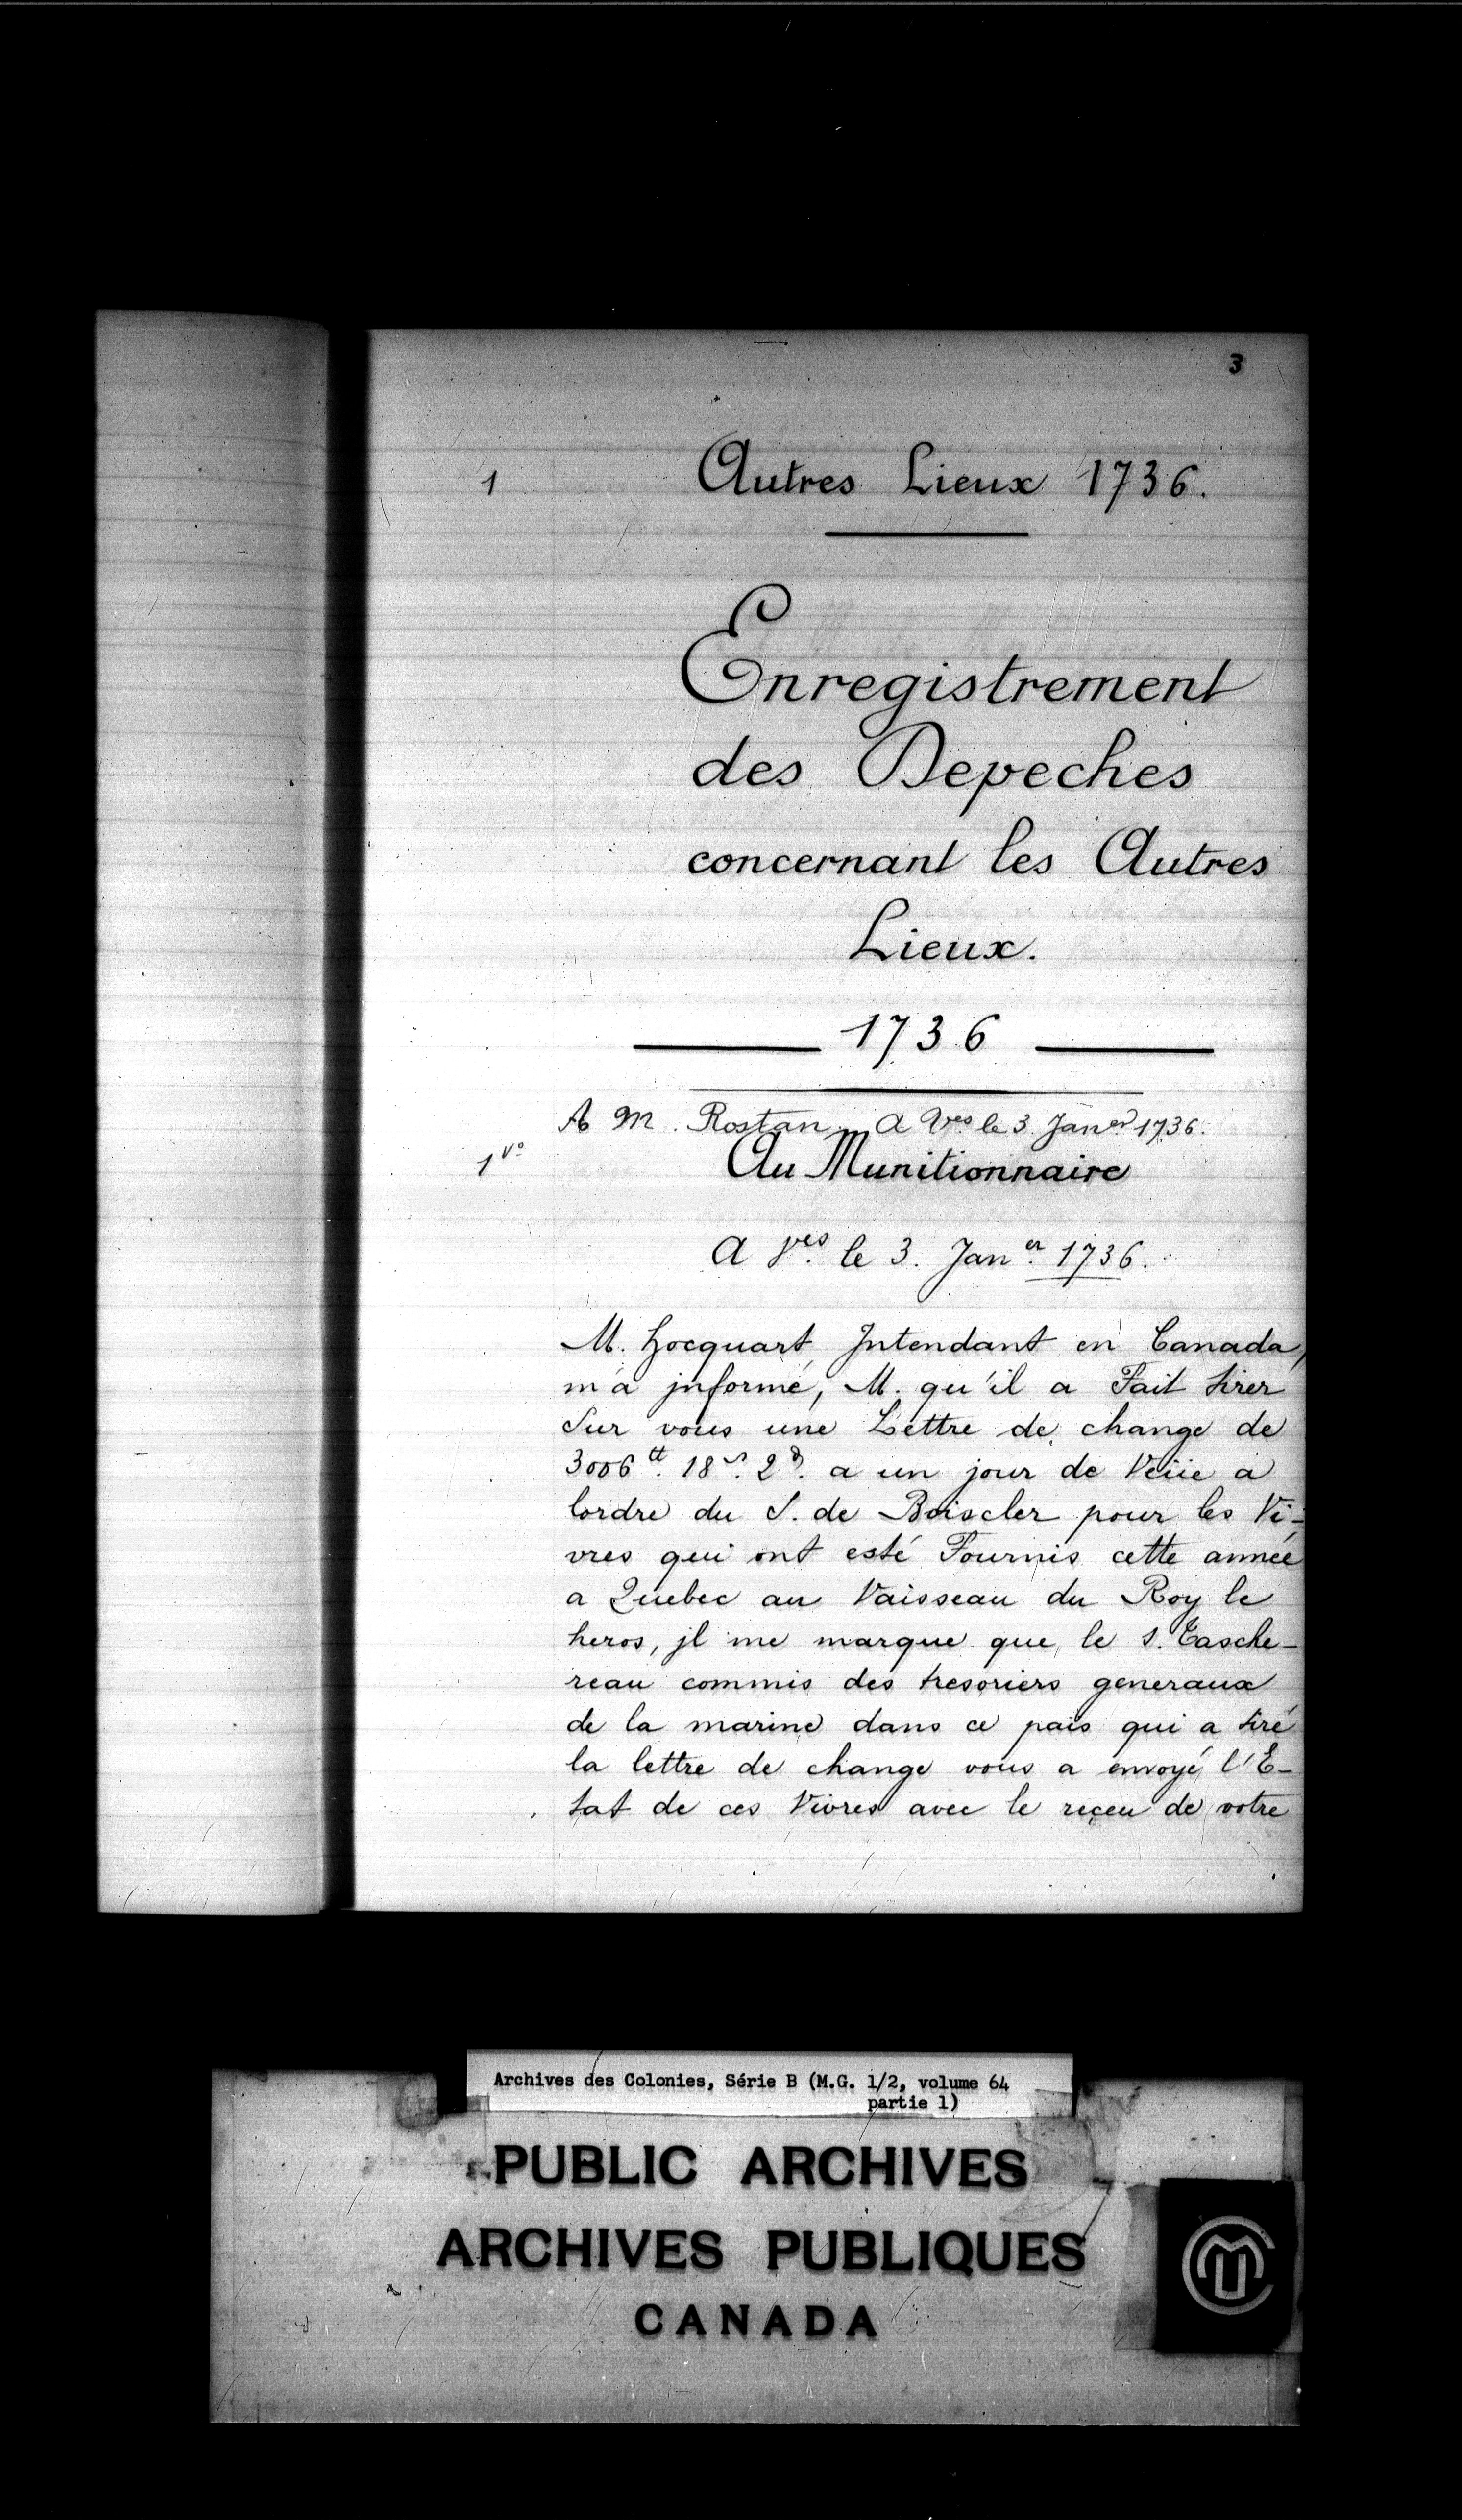 3
1 Autres Lieux 1736.
Enregistrement
des Depeches
concernant les Autres
Lieux.
1736
A M. Rostan. A Ves le 3. Janer 1736.
1 vo Au Munitionnaire
A Ves. le 3. Janer. 1736.
M. hocquart Jntendant en Canada,
m'a jnformé, M. qu'il a Fait tirer
Sur vous une Lettre de change de
3006tt. 18s. 2d. a un jour de Veüe a
lordre du S. de Boiscler pour les Vi-
vres qui ont esté Fournis cette année
a Quebec au Vaisseau du Roy le
heros, jl me marque que le s. Tasche-
reau commis des tresoriers generaux
de la marine dans ce païs qui a tiré
la lettre de change vous a envoyé l'E-
tat de ces Vivres avec le reçeu de votre
Archives des Colonies, Série B (M.G. 1/2, volume 64
partie 1)
PUBLIC ARCHIVES
ARCHIVES PUBLIQUES
CANADA